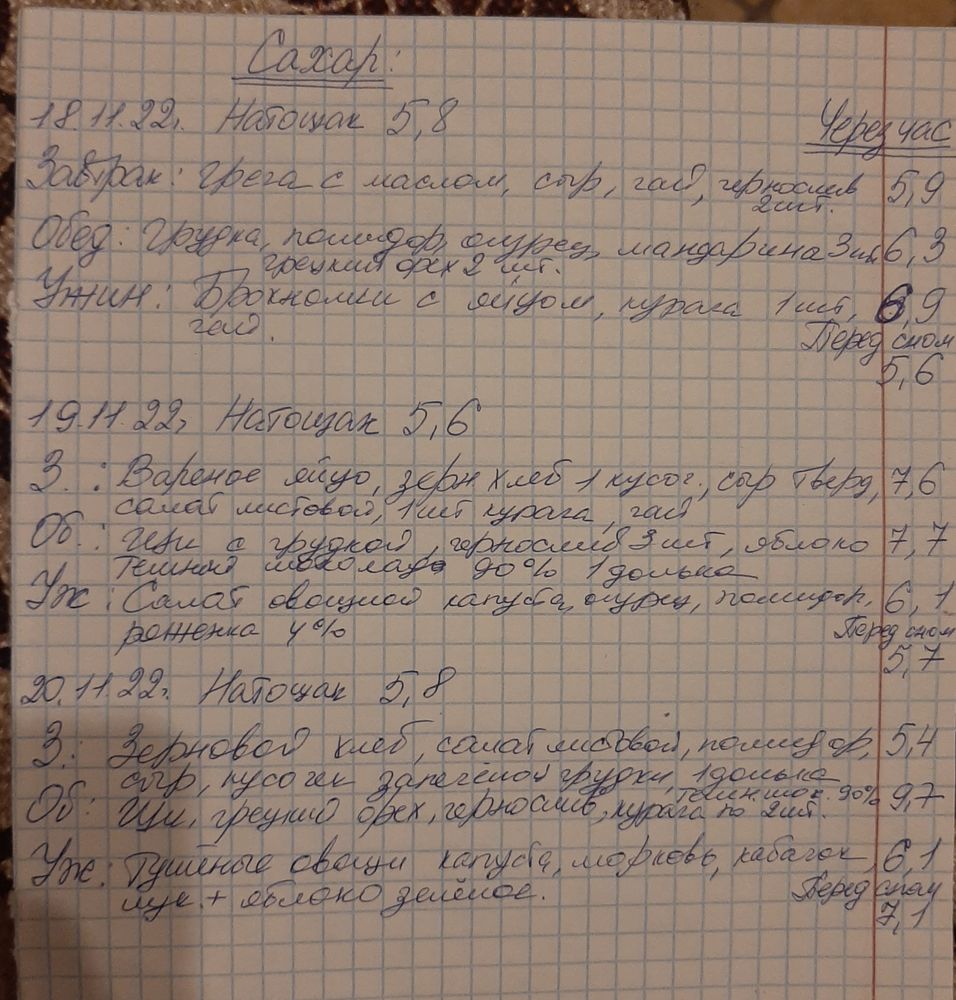 Сахар:
18.11.22г. Натощак 5,8 Через час
Завтрак: греча с маслом, сыр, чай, чернослив 5,9
2шт.
Обед: Грудка, помидор, огурец, мандарина 3шт 6,3
грецкий орех 2 шт.
Ужин: Брокколи с яйцом, курага 1 шт, 6,9
чай. Перед сном
5,6
19.11.22г Натощак 5,6
З. : Вареное яйцо, зерн хлеб 1 кусоч., сыр тверд, 7,6
салат листовой, 1 шт курага, чай
Об.: Щи с грудкой, чернослив 3 шт, яблоко 7,7
Темный шоколад 90% 1 долька
Уж: Салат овощной капуста, огурец, помидор, 6,1
ряженка 4% Перед сном
5,7
20.11.22г. Натощак 5,8
З.: Зерновой хлеб, салат листовой, помидор, 5,4
сыр, кусочек запечёной грудки, 1 долька
темн. шок. 90%
Об: Щи, грецкий орех, чернослив, курага по 2шт. 9,7
Уж: Тушёные овощи капуста, морковь, кабачок, 6,1
лук + яблоко зелёное. Перед сном
7,1